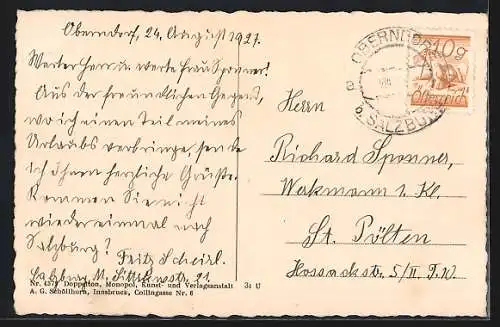 Oberndorf, 24. August 1927.
Werter Herr u. werte Frau Sponner!
Aus der freundlichen Gegend,
wo ich einen Teil meines
Urlaubs verbringe, sende
ich Ihnen herzliche Grüße.
Kommen Sie nicht
wieder einmal nach
Salzburg? Fritz Scheirl.
Salzburg, M. Sittikusstr. 21
Nr. 4378 Doppelton, Monopol, Kunst- und Verlagsanstalt
A. G. Schöllhorn, Innsbruck, Collingasse Nr. 6
OBERNDORF
SALZBURG
10 g
Österreich
Herrn
Richard Sponner,
Werkmann 1. Kl.
St. Pölten
Hossackstr. 5/II